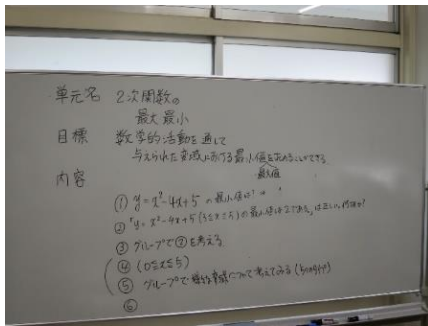 単元名 2次関数の
最大 最小
目標 数学的活動を通して
与えられた変域における最小値を求めることができる
最大値
内容
① y=x²-4x+5 の最小値は?
② 「y=x²-4x+5 (3≦x≦5) の最小値は である」は正しい。何故か?
③ グループで②を考える
④ (0≦x≦5)
⑤ グループで について考えてみる
⑥